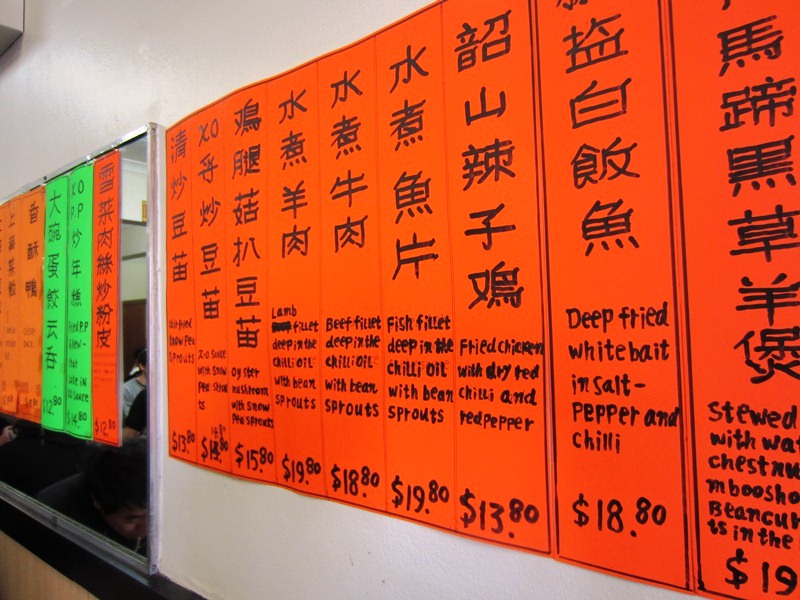 香
酥
鴨
大碗蛋餃云吞
$12.80
XO
P.P
炒年糕
$14.80
雪菜肉絲炒粉皮
$12.80
清炒豆苗
Snow Pea
Sprouts
$13.80
XO
炒豆苗
X.O Sauce
with Snow
Pea Sprou
ts
$14.80
鴻腿菇扒豆苗
Oyster
mushroom
with Snow
Pea Sprouts
$15.80
水煮羊肉
Lamb
fillet
deep in the
chilli oil
with bean
sprouts
$19.80
水煮牛肉
Beef fillet
deep in the
chilli oil
with bean
sprouts
$18.80
水煮魚片
Fish fillet
deep in the
chilli oil
with bean
sprouts
$19.80
韶山辣子鴻
Fried chicken
with dry red
chilli and
red pepper
$13.80
盐白飯魚
Deep fried
white bait
in salt-
Pepper and
chilli
$18.80
馬蹄黑草羊煲
Stewed
with wat
chestnu
mboosho
Beancur
ts in the
$19